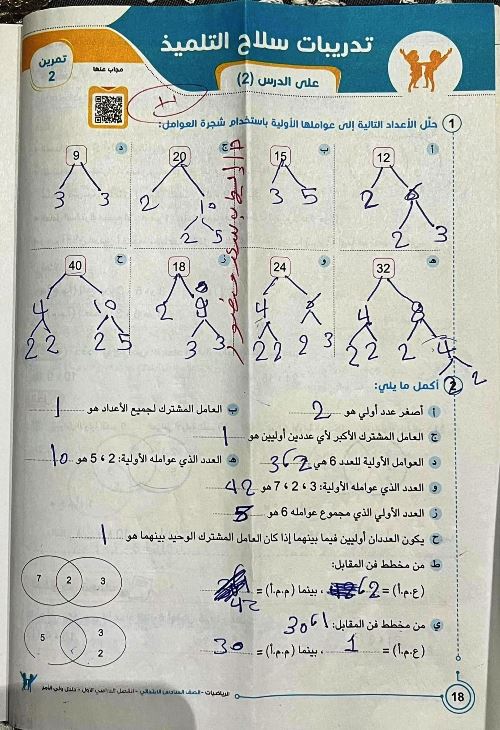 تدريبات سلاح التلميذ
على الدرس (2)
تمرين 2
مجاب عنها
1 حلّل الأعداد التالية إلى عواملها الأولية باستخدام شجرة العوامل:
أ 12 2 6 2 3
ب 15 3 5
ج 20 2 10 2 5
د 9 3 3
هـ 32 4 8 2 2 2 4 2 2
و 24 4 6 2 2 2 3
ز 18 2 9 3 3
ح 40 4 10 2 2 2 5
2 أكمل ما يلي:
أ أصغر عدد أولي هو 2
ب العامل المشترك لجميع الأعداد هو 1
ج العامل المشترك الأكبر لأي عددين أوليين هو 1
د العوامل الأولية للعدد 6 هي 2 ، 3
هـ العدد الذي عوامله الأولية: 2 ، 5 هو 10
و العدد الذي عوامله الأولية: 3 ، 2 ، 7 هو 42
ز العدد الأولي الذي مجموع عوامله 6 هو 5
ح يكون العددان أوليين فيما بينهما إذا كان العامل المشترك الوحيد بينهما هو 1
ط من مخطط فن المقابل:
(ع.م.أ) = 2 ، بينما (م.م.أ) = 42
7 2 3
ي من مخطط فن المقابل: 1 ، 30
(ع.م.أ) = 1 ، بينما (م.م.أ) = 30
5 3 2
الرياضيات - الصف السادس الابتدائي - الفصل الدراسي الأول - دليل ولي الأمر
18